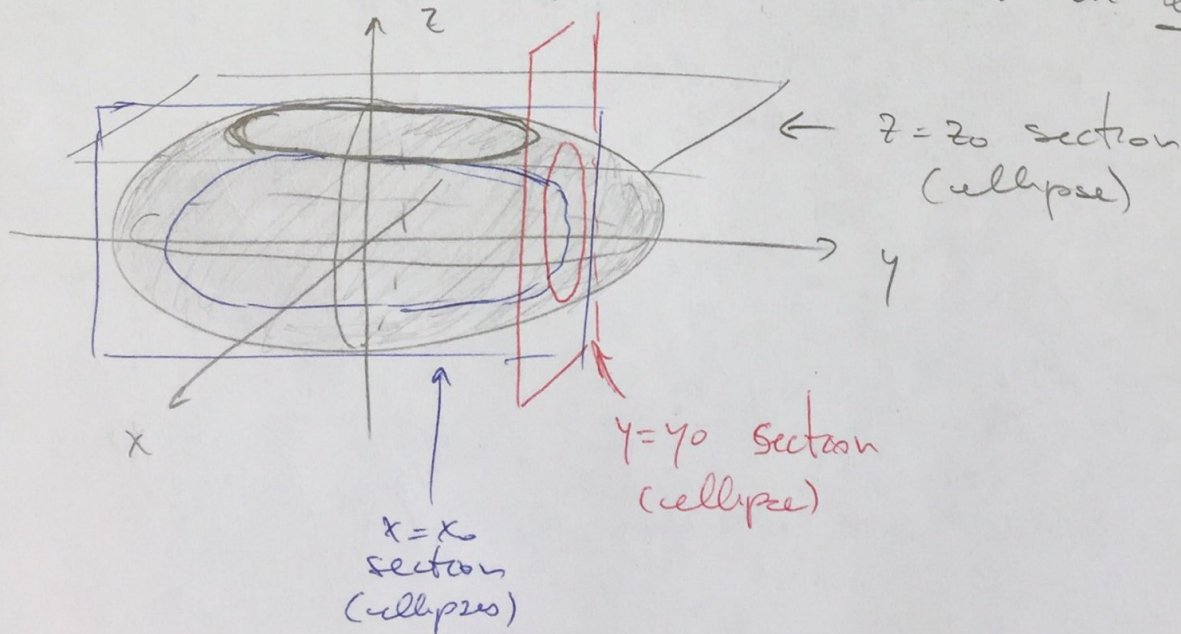 z
z = z0 section
(ellipse)
y
x
y = y0 section
(ellipse)
x = x0
section
(ellipses)